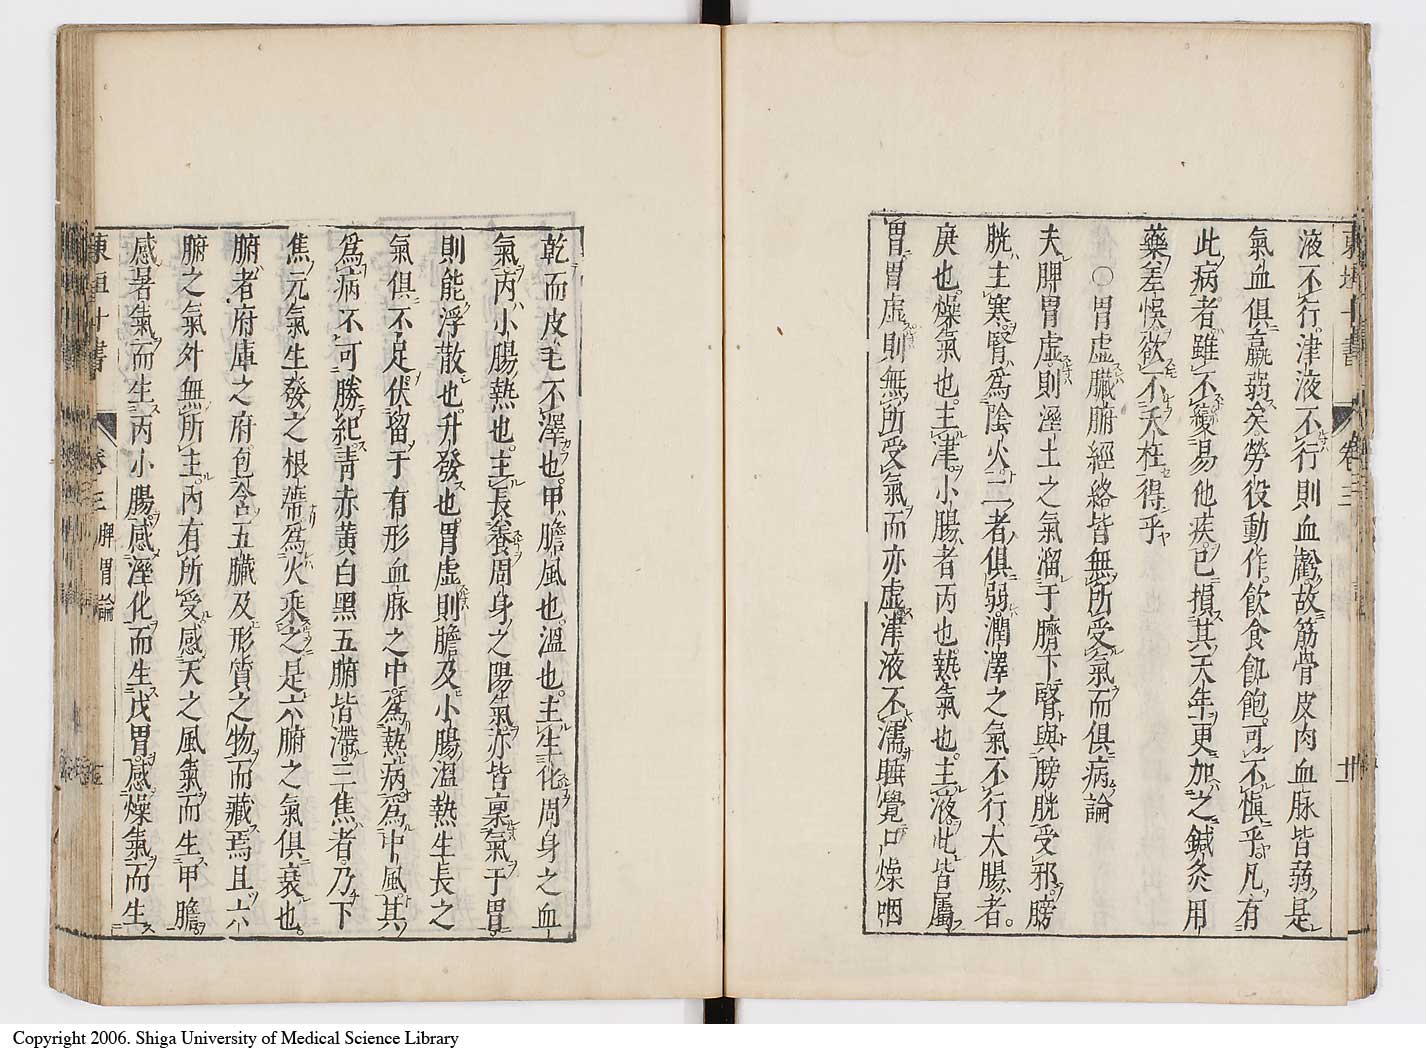 液不行津液不行則血虧故筋骨皮肉血脉皆弱是
氣血俱羸弱矣勞役動作飲食飢飽可不慎乎凡有
此病者雖不變易他疾已損其天年更加之鍼灸用
藥差悞欲不夭枉得乎
〇胃虛臟腑經絡皆無所受氣而俱病論
夫脾胃虛則溼土之氣溜于臍下腎與膀胱受邪膀
胱主寒腎爲陰火二者俱弱潤澤之氣不行大腸者
庚也燥氣也主津小腸者丙也熱氣也主液此皆屬
胃胃虛則無所受氣而亦虛津液不濡睡覺口燥咽
乾而皮毛不澤也甲膽風也溫也主生化周身之血
氣丙小腸熱也主長養周身之陽氣亦皆稟氣于胃
則能浮散也升發也胃虛則膽及小腸溫熱生長之
氣俱不足伏留于有形血脉之中爲熱病爲中風其
爲病不可勝紀青赤黃白黑五腑皆滯三焦者乃下
焦元氣生發之根蔕爲火乘之是六腑之氣俱衰也
腑者府庫之府包含五臟及形質之物而藏焉且六
腑之氣外無所主內有所受感天之風氣而生甲膽
感暑氣而生丙小腸感溼化而生戊胃感燥氣而生
東垣十書 卷三 脾胃論
Copyright 2006. Shiga University of Medical Science Library